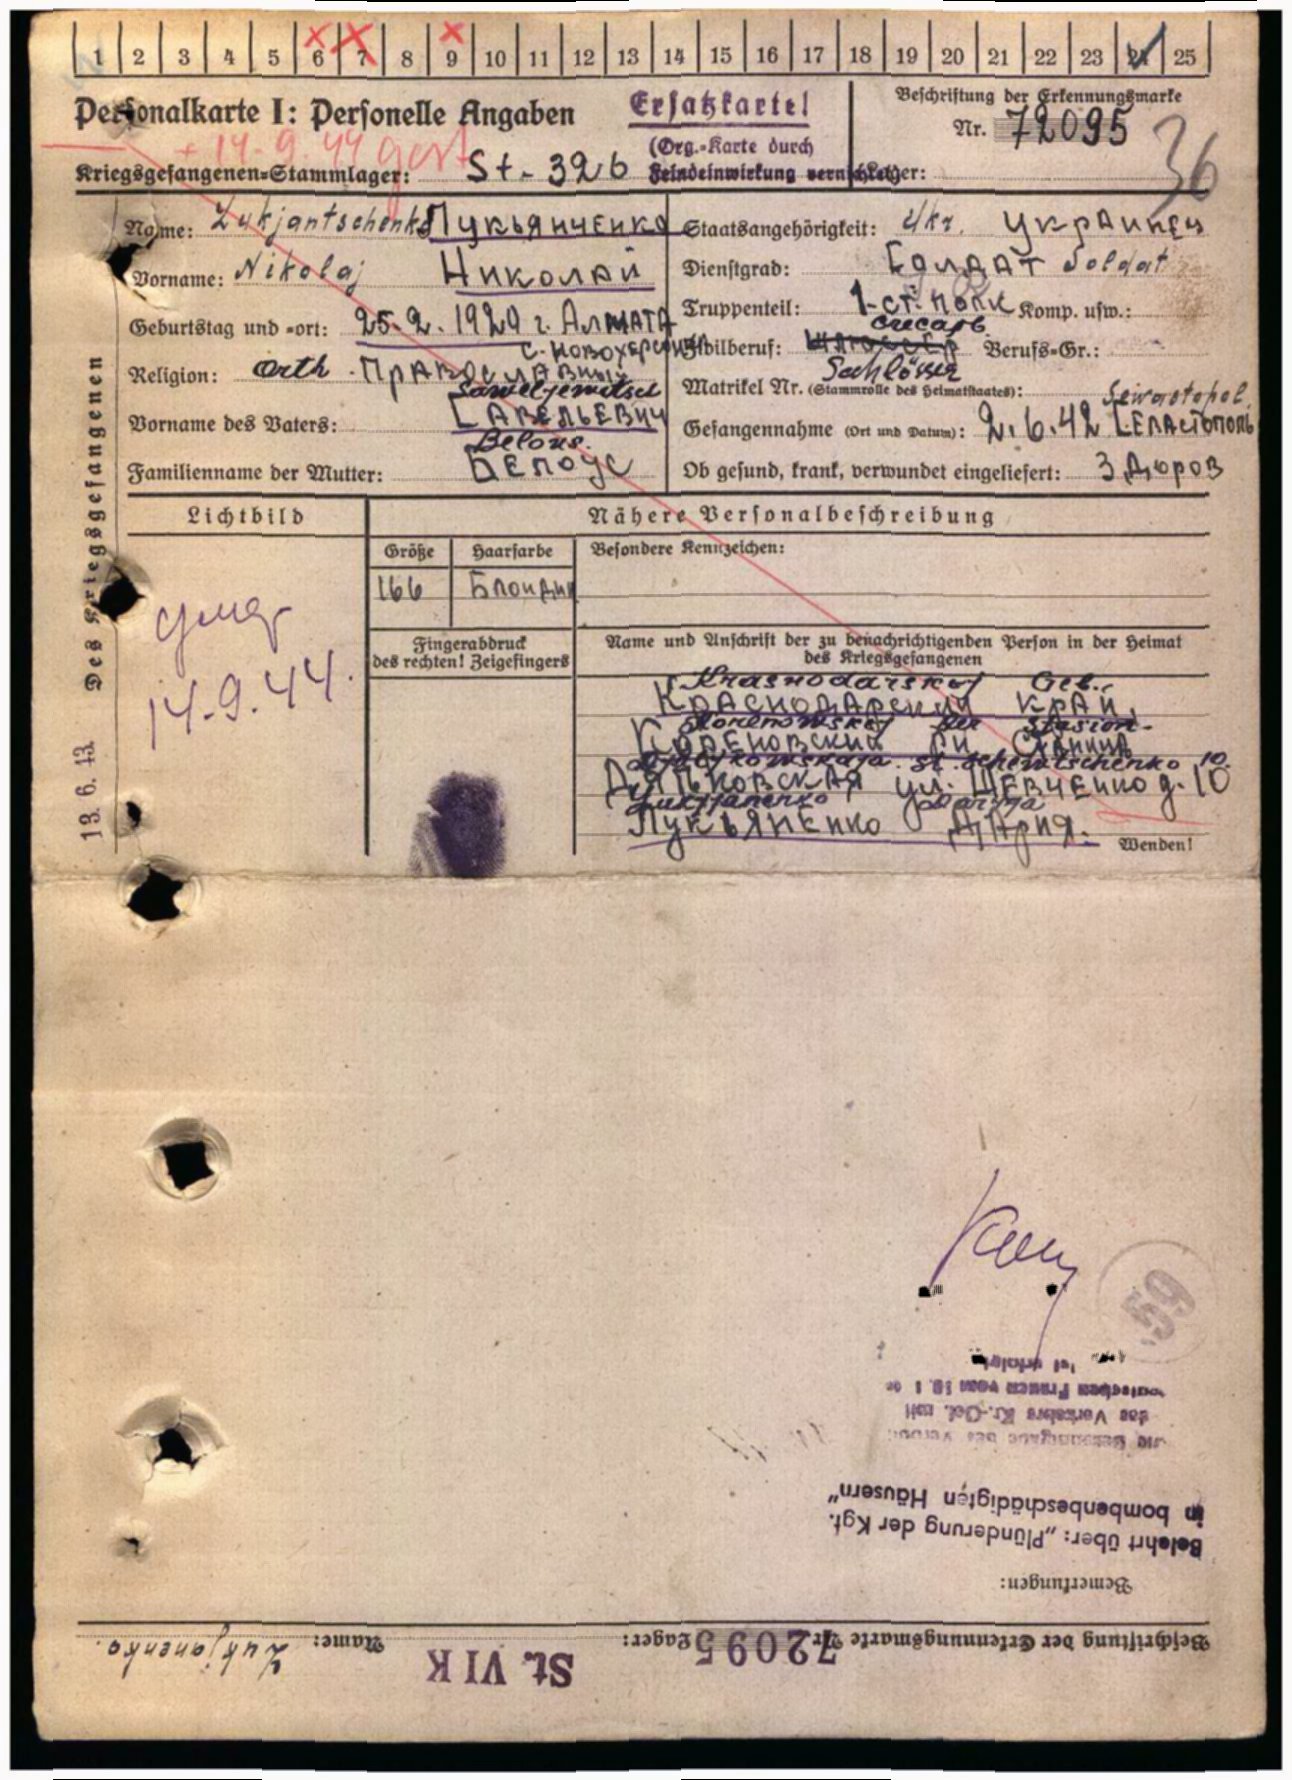 1 2 3 4 5 6 7 8 9 10 11 12 13 14 15 16 17 18 19 20 21 22 23 24 25
Personalkarte I: Personelle Angaben
Ersatzkarte!
(Org.-Karte durch
Feindeinwirkung vernichtet)
Beschriftung der Erkennungsmarke
Nr. 72095
36
+ 14.9.44 gest
Kriegsgefangenen-Stammlager: St-326
Lager:
Name: Lukjantschenko Лукьянченко
Staatsangehörigkeit: Ukr. Украинец
Vorname: Nikolaj Николай
Dienstgrad: Солдат Soldat
Geburtstag und -ort: 25.2.1920 г. Алмата
Truppenteil: 1-ст. полк Komp. usw.:
слесарь
Zivilberuf: Berufs-Gr.:
Religion: orth. Православный
Schlösser
Matrikel Nr. (Stammrolle des Heimatstaates):
Saweljewitsch
Sewastopol
Vorname des Vaters: Савельевич
Gefangennahme (Ort und Datum): 2.6.42
Belous.
Familienname der Mutter: Белоус
Ob gesund, krank, verwundet eingeliefert: Здоров
Des Kriegsgefangenen
13. 6. 43
Lichtbild
Nähere Personalbeschreibung
Größe
Haarfarbe
Besondere Kennzeichen:
166
Блондин
умер
14.9.44.
Fingerabdruck
des rechten! Zeigefingers
Name und Anschrift der zu benachrichtigenden Person in der Heimat
des Kriegsgefangenen
Krasnodarskoj Geb.
Краснодарский край,
Korenowskoj
Кореновский рн Станица
st. Schewtschenko 10.
Дядьковская ул. Шевченко д. 10
Lukjanenko Darija
Лукьяненко Дария.
Wenden!
59
ist erfolgt
deutschen Frauen vom
des Verkehrs Kr.-Gef. mit
in bombenbeschädigten Häusern"
Belehrt über: „Plünderung der Kgf.
Bemerkungen:
Beschriftung der Erkennungsmarke Nr. 72095 Lager: St. VI K Name: Lukjanenko.